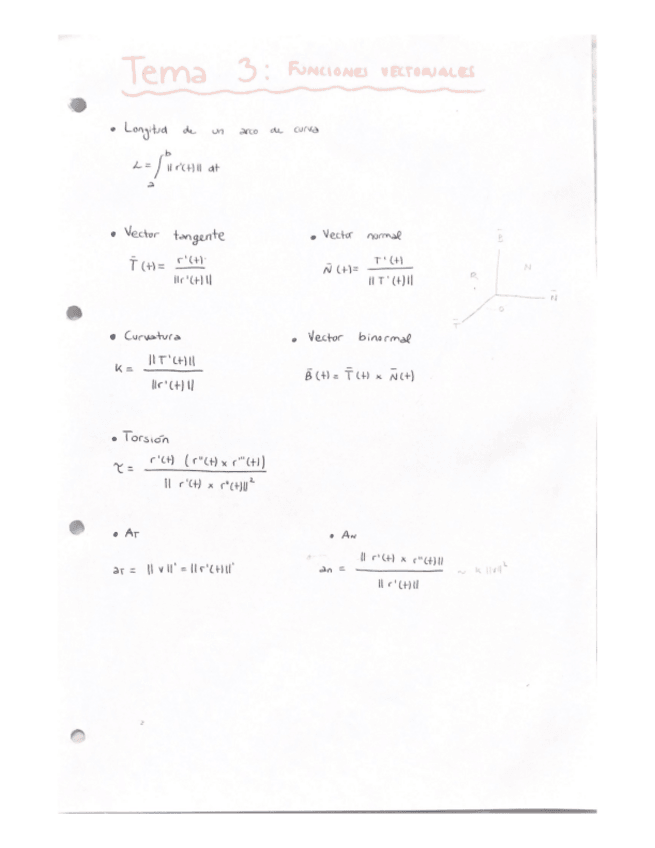 Tema 3: FUNCIONES VECTORIALES
• Longitud de un arco de curva
L = ∫_a^b ||r'(t)|| dt
• Vector tangente
T̄(t) = r'(t) / ||r'(t)||
• Vector normal
N̄(t) = T'(t) / ||T'(t)||
B̄
N̄
T̄
• Curvatura
K = ||T'(t)|| / ||r'(t)||
• Vector binormal
B̄(t) = T̄(t) × N̄(t)
• Torsión
τ = r'(t) (r''(t) × r'''(t)) / ||r'(t) × r''(t)||²
• AT
aT = ||v||' = ||r'(t)||'
• AN
an = ||r'(t) × r''(t)|| / ||r'(t)|| ~ K||v||²